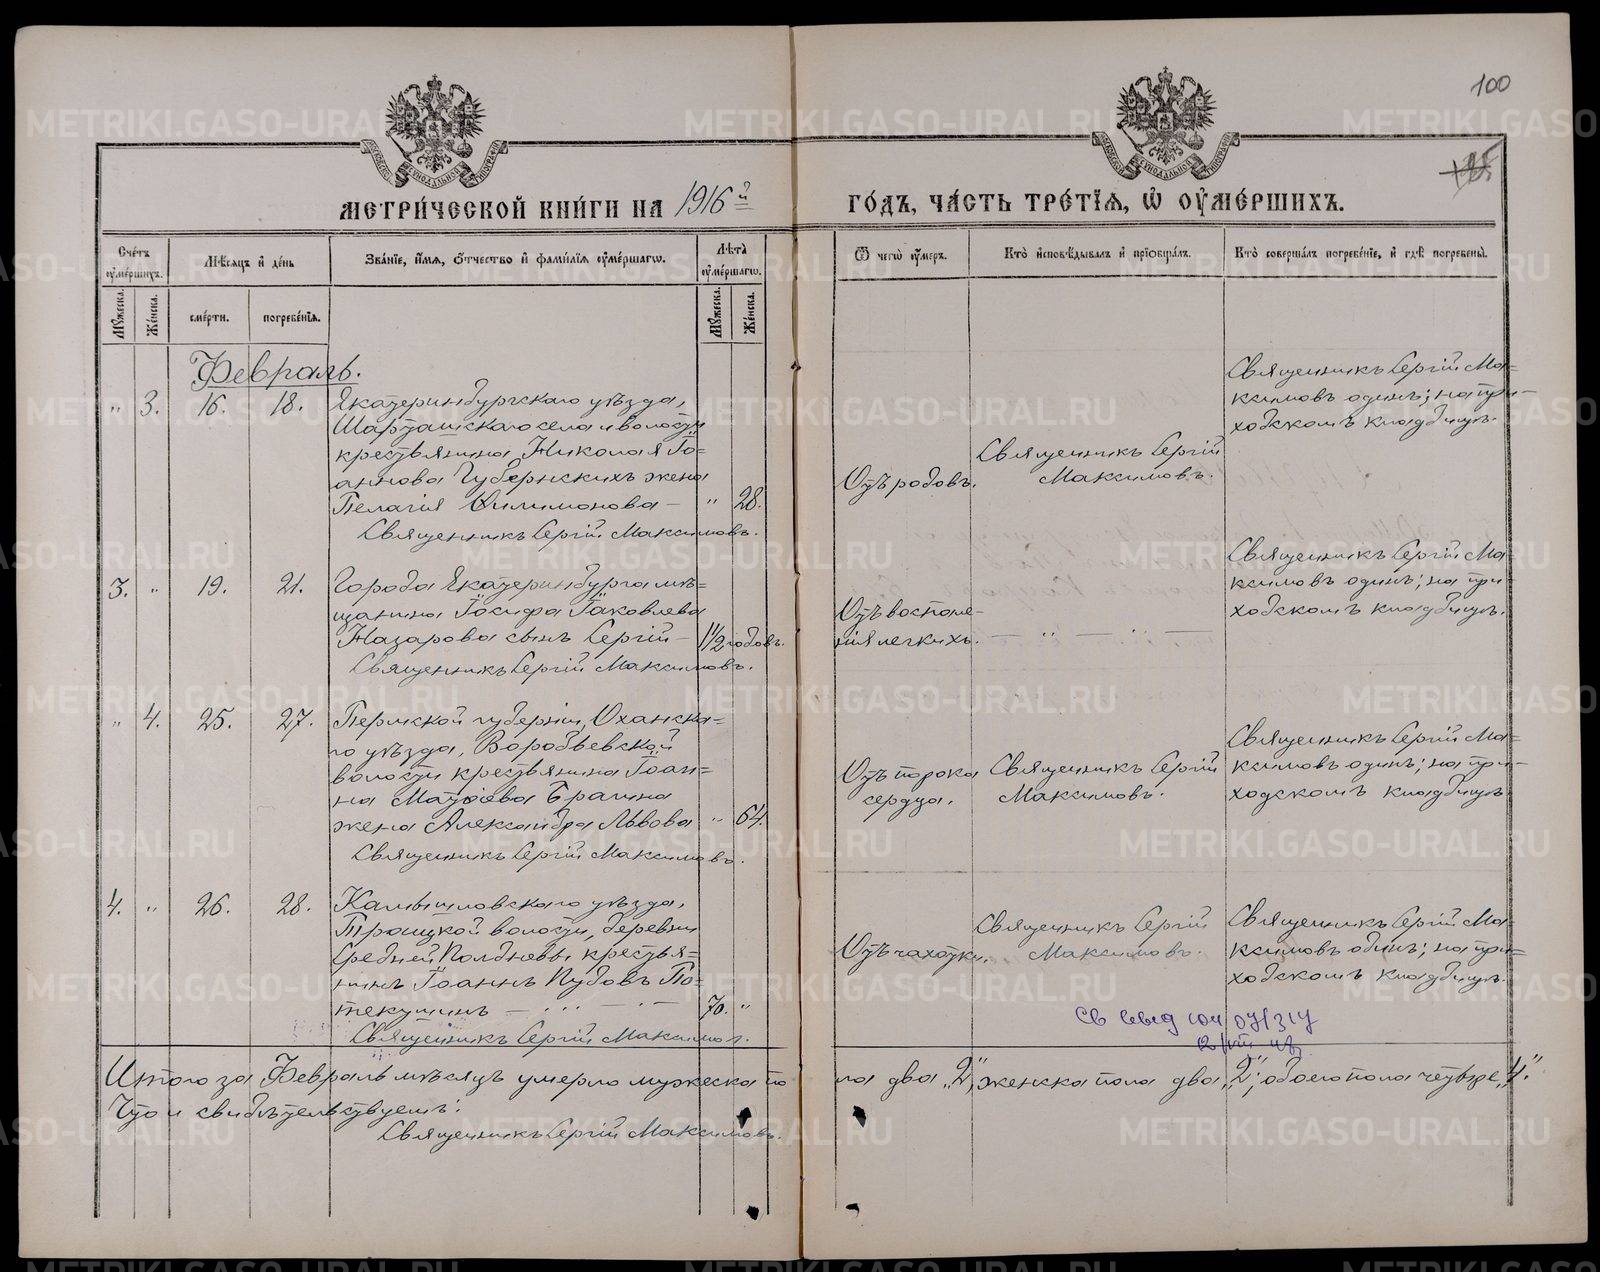 100
МЕТРИ́ЧЕСКОЙ КНИ́ГИ НА 1916й ГО́ДЪ, ЧА́СТЬ ТРЕ́ТІЯ, Ѿ ОУМЕ́РШИХЪ.
Сче́тъ оуме́ршихъ.
Мѣ́сяцъ и де́нь
Зва́ніе, и́мя, о́тчество и фами́лія оуме́ршагѡ.
Лѣ́та оуме́ршагѡ.
Ѿ чегѡ̀ оу́меръ.
Кто̀ исповѣ́дывалъ и пріобща́лъ.
Кто̀ соверша́лъ погребе́ніе, и гдѣ̀ погребены̀.
Му́жеска.
Же́нска.
сме́рти.
погребе́нія.
Му́жеска.
Же́нска.
Февраль.
" 3. 16. 18.
Екатеринбургскаго уѣзда,
Шарташскаго села и волости
крестьянина Николая Іо-
аннова Губернскихъ жена
Пелагія Филимонова — " 28.
Священникъ Сергій Максимовъ.
Отъ родовъ.
Священникъ Сергій
Максимовъ.
Священникъ Сергій Ма-
ксимовъ одинъ; на при-
ходскомъ кладбищѣ.
3. " 19. 21.
Города Екатеринбурга мѣ-
щанина Іосифа Іаковлева
Назарова сынъ Сергій — 1 1/2 годовъ.
Священникъ Сергій Максимовъ.
Отъ воспале-
нія легкихъ.
— " — " —
Священникъ Сергій Ма-
ксимовъ одинъ; на при-
ходскомъ кладбищѣ.
" 4. 25. 27.
Пермской губерніи, Оханска-
го уѣзда, Воробьевской
волости крестьянина Іоан-
на Матѳіева Брагина
жена Александра Львова " 64.
Священникъ Сергій Максимовъ.
Отъ порока
сердца.
Священникъ Сергій
Максимовъ.
Священникъ Сергій Ма-
ксимовъ одинъ; на при-
ходскомъ кладбищѣ
4. " 26. 28.
Камышловскаго уѣзда,
Троицкой волости, деревни
Средней Полдневы крестья-
нинъ Іоаннъ Иудовъ По-
текушинъ — " — 70. "
Священникъ Сергій Максимов.
Отъ чахотки.
Священникъ Сергій
Максимовъ.
Священникъ Сергій Ма-
ксимовъ одинъ; на при-
ходскомъ кладбищѣ.
Итого за Февраль мѣсяцъ умерло мужеска по-
ла два "2", женска пола два "2"; обоего пола четыре "4".
Что и свидѣтельствуемъ:
Священникъ Сергій Максимовъ.
METRIKI.GASO-URAL.RU